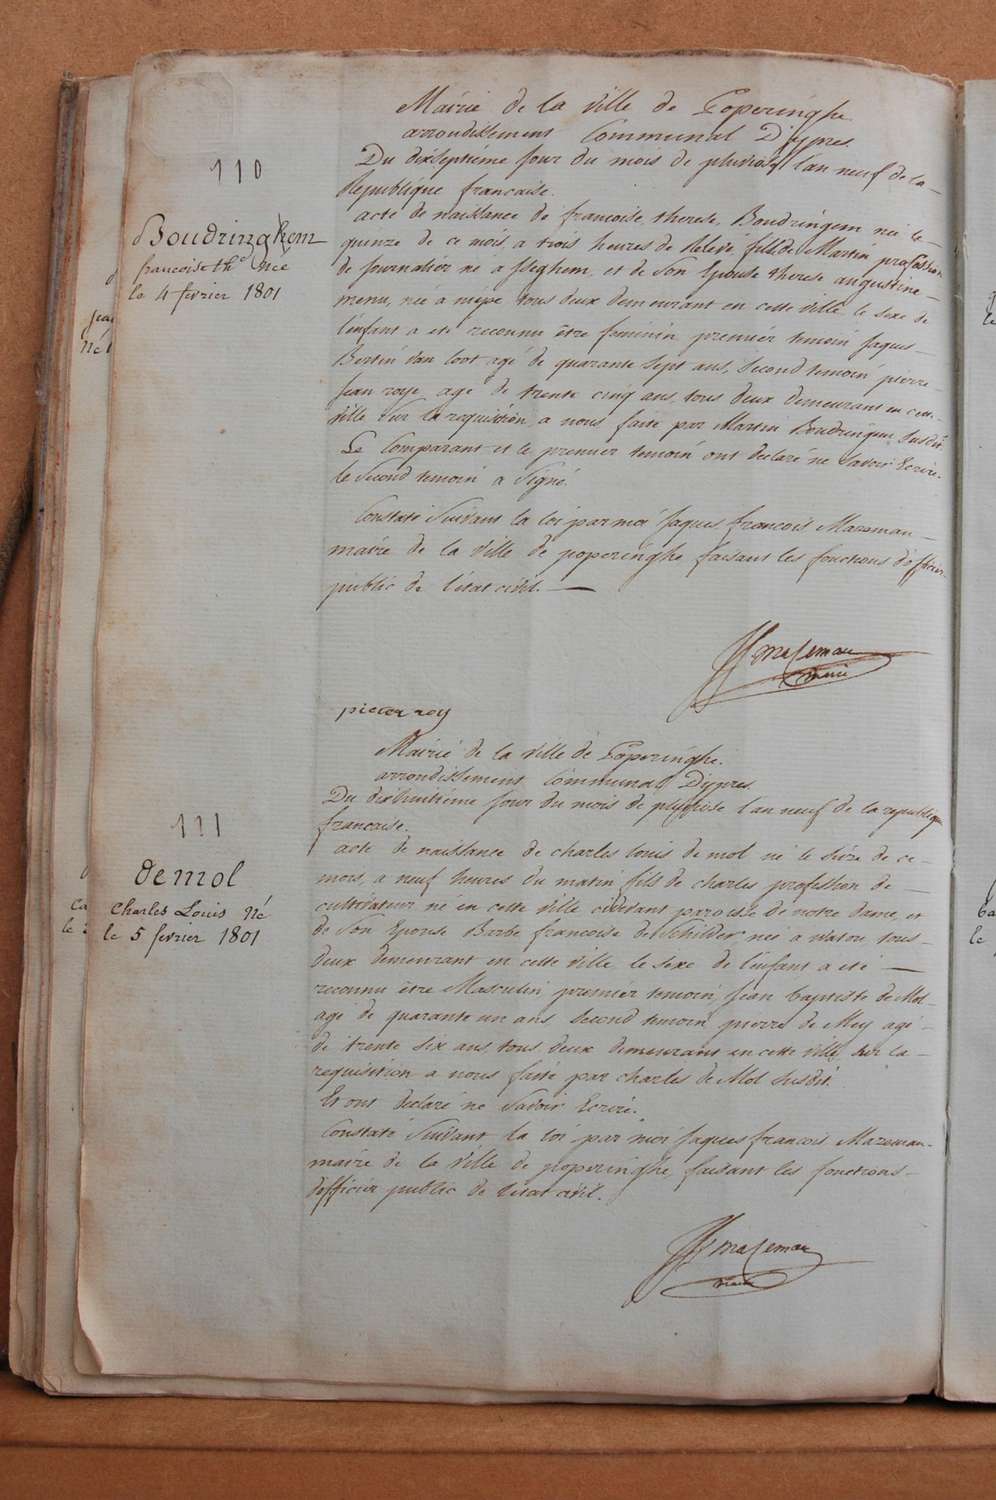 110
Boudringhem
francoise the. Née
le 4 fevrier 1801
Mairie de la ville de Poperinghe
arrondissement Communal D'ypres
Du dixseptième jour du mois de pluviose l'an neuf de la
Republique francaise.
acte de naissance de francoise therese, Boudringem née le
quinze de ce mois a trois heures de relevé fille de Martin profession
de journalier né a Iseghem, et de son Epouse therese augustine
menu, née a niepe tous deux demeurant en cette ville le sexe de
l'enfant a eté reconnu être feminin premier temoin jaques
Bertin van loot agé de quarante sept ans, second temoin pierre
jean roye agé de trente cinq ans, tous deux demeurant en cette
ville sur la requisition a nous faite par Martin Boudringem susdit.
Le Comparant et le premier temoin ont declaré ne savoir Ecrire.
le second temoin a signé.
Constaté suivant la loi par moi jaques francois Mazeman
maire de la ville de poperinghe faisant les fonctions d'officier
public de l'état civil.
JF mazeman
maire
pieter roy
111
demol
Charles Louis Né
le 5 fevrier 1801
Mairie de la ville de Poperinghe.
arrondissement Communal D'ypres
Du dixhuitième jour du mois de pluviose l'an neuf de la republique
francaise.
acte de naissance de charles louis de mol né le seize de ce
mois, a neuf heures du matin fils de charles profession de
cultivateur né en cette ville cidevant paroisse de notre dame, et
de son Epouse Barbe francoise de Schilder née a watou tous
deux demeurant en cette ville le sexe de l'enfant a eté
reconnu être Masculin premier temoin jean baptiste de Mol
agé de quarante un ans second temoin pierre de Mey agé
de trente six ans, tous deux demeurant en cette ville sur la
requisition a nous faite par charles de Mol susdit.
Et ont declaré ne savoir Ecrire.
Constaté suivant la loi par moi jaques francois Mazeman
maire de la ville de poperinghe, faisant les fonctions
d'officier public de l'état civil.
JF mazeman
maire